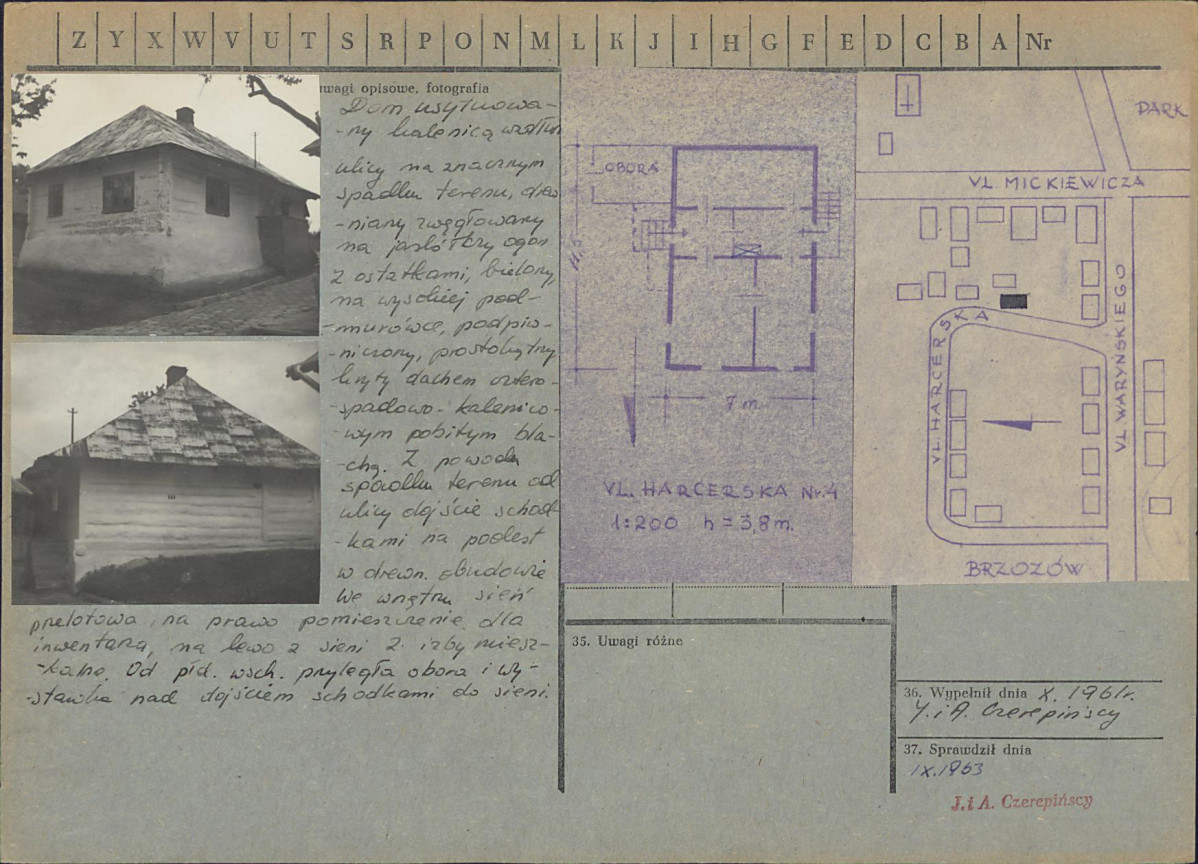 Z Y X W V U T S R P O N M L K J I H G F E D C B A Nr
uwagi opisowe, fotografia
Dom usytuowa-
-ny kalenicą wzdłuż
ulicy na znacznym
spadku terenu, drew
-niany zwęgłowany
na jaskółczy ogon
z ostatkami, bielony,
na wysokiej pod-
-murówce, podpiw-
-niczony, prostokątny
kryty dachem cztero-
-spadowo-kalenico-
-wym pobitym bla-
-chą. Z powodu
spadku terenu od
ulicy dojście schod
-kami na podest
w drewn. obudowie
We wnętrzu sień
przelotowa, na prawo pomieszczenie dla
inwentarza, na lewo z sieni 2 izby miesz-
-kalne. Od płd. wsch. przyległa obora i wy-
-stawka nad dojściem schodkami do sieni.
OBORA
7 m.
UL. HARCERSKA Nr. 4
1:200 h = 3,8 m.
PARK
UL. MICKIEWICZA
UL. HARCERSKA
UL. WARYŃSKIEGO
BRZOZÓW
35. Uwagi różne
36. Wypełnił dnia X. 1961r.
J. i A. Czerepińscy
37. Sprawdził dnia
IX.1963
J. i A. Czerepińscy